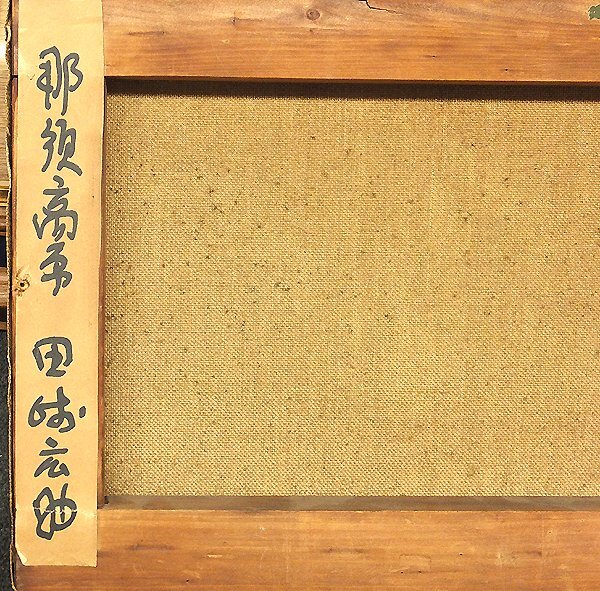 那須高原 田崎広助